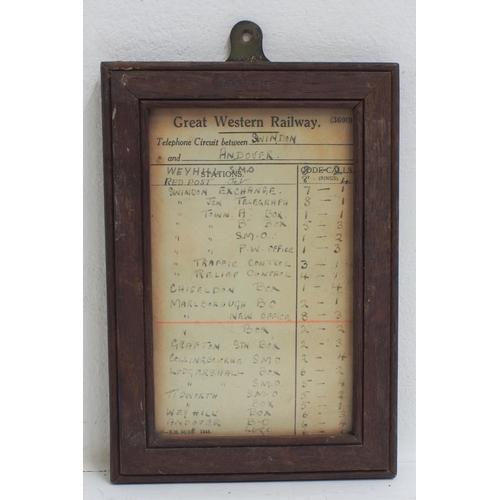 Great Western Railway.
(3600)
Telephone Circuit between SWINDON
and ANDOVER.
STATIONS. CODE CALLS
(RINGS)
WEYHILL S.M.O
RED POST JCT 4
SWINDON EXCHANGE. 7 - 1
" JCN TELEGRAPH 8 - 1
" TOWN A BOX 1 - 1
" " B BOX 5 - 3
" " S.M.O. 1 - 2
" " P.W. OFFICE 1 - 3
" TRAFFIC CONTROL 3 - 1
" RELIEF CONTROL 4 - 1
CHISELDON BOX 1 - 4
MARLBOROUGH BO 2 - 1
" NEW OFFICE 8 - 3
" BOX 2 - 2
GRAFTON STN BOX 2 - 3
COLLINGBOURNE S.M.O 2 - 4
LUDGERSHALL BOX 6 - 2
" " S.M.O 5 - 4
TIDWORTH S.M.O 5 - 2
" BOX 5 - 1
WEYHILL BOX 6 - 3
ANDOVER B-O 6 - 4